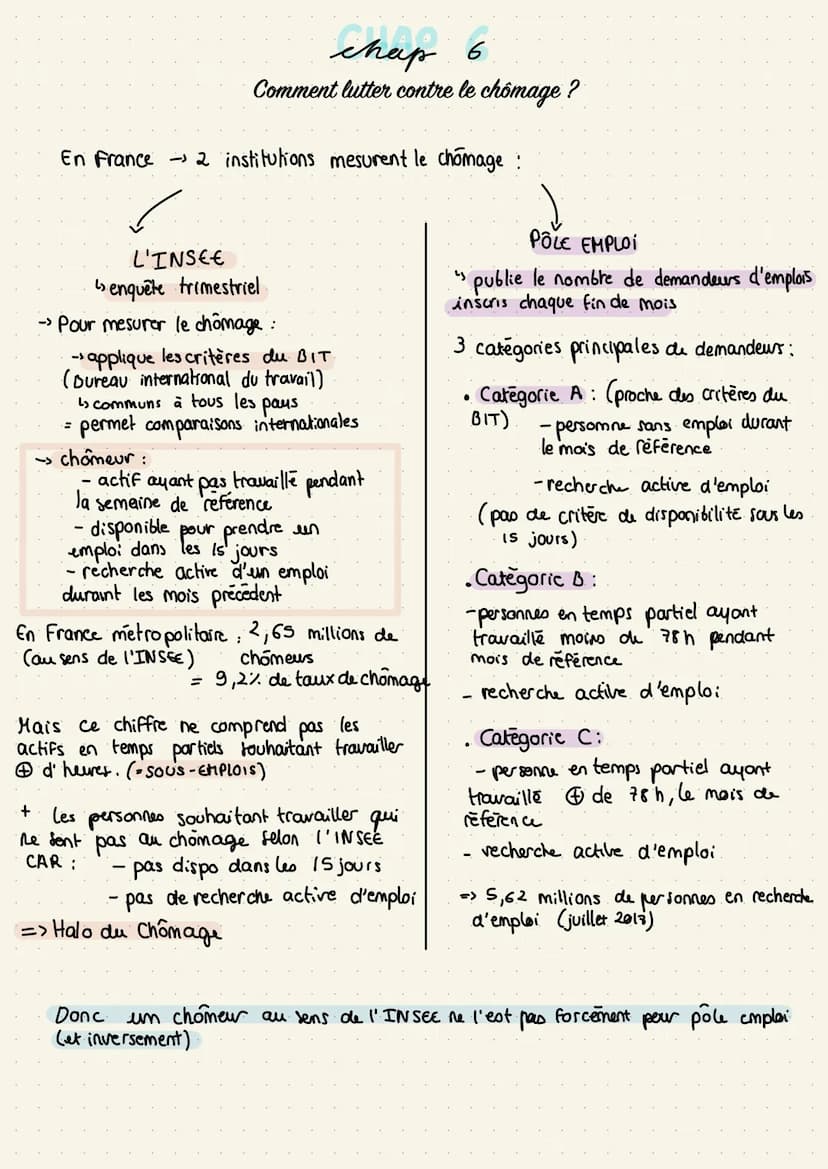 CHAP 6
chap 6
Comment lutter contre le chômage ?
En France → 2 institutions mesurent le chômage :
L'INSEE
↳ enquête trimestriel
→ Pour mesurer le chômage :
→ applique les critères du BIT
(bureau international du travail)
↳ communs à tous les pays
= permet comparaisons internationales
→ chômeur :
- actif ayant pas travaillé pendant
la semaine de référence
- disponible pour prendre un
emploi dans les 15 jours
- recherche active d'un emploi
durant les mois précédent
En France métropolitaine : 2,65 millions de
(au sens de l'INSEE) chômeurs
= 9,2% de taux de chômage
Mais ce chiffre ne comprend pas les
actifs en temps partiels souhaitant travailler
⊕ d'heures. (= SOUS-EMPLOIS)
+ les personnes souhaitant travailler qui
ne sont pas au chômage selon l'INSEE
CAR : - pas dispo dans les 15 jours
- pas de recherche active d'emploi
=> Halo du Chômage
PÔLE EMPLOI
↳ publie le nombre de demandeurs d'emplois
inscris chaque fin de mois
3 catégories principales de demandeurs :
• Catégorie A : (proche des critères du
BIT) - personne sans emploi durant
le mois de référence
- recherche active d'emploi
(pas de critère de disponibilité sous les
15 jours)
. Catégorie B :
- personnes en temps partiel ayant
travaillé moins de 78h pendant
mois de référence
- recherche active d'emploi
. Catégorie C :
- personne en temps partiel ayant
travaillé ⊕ de 78h, le mois de
référence
- recherche active d'emploi
=> 5,62 millions de personnes en recherche
d'emploi (juillet 2017)
Donc un chômeur au sens de l'INSEE ne l'est pas forcément pour pôle emploi
(et inversement)